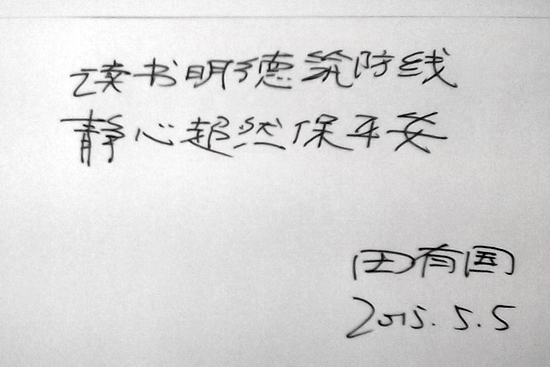 读书明德筑防线
静心超然保平安
田有国
2015.5.5